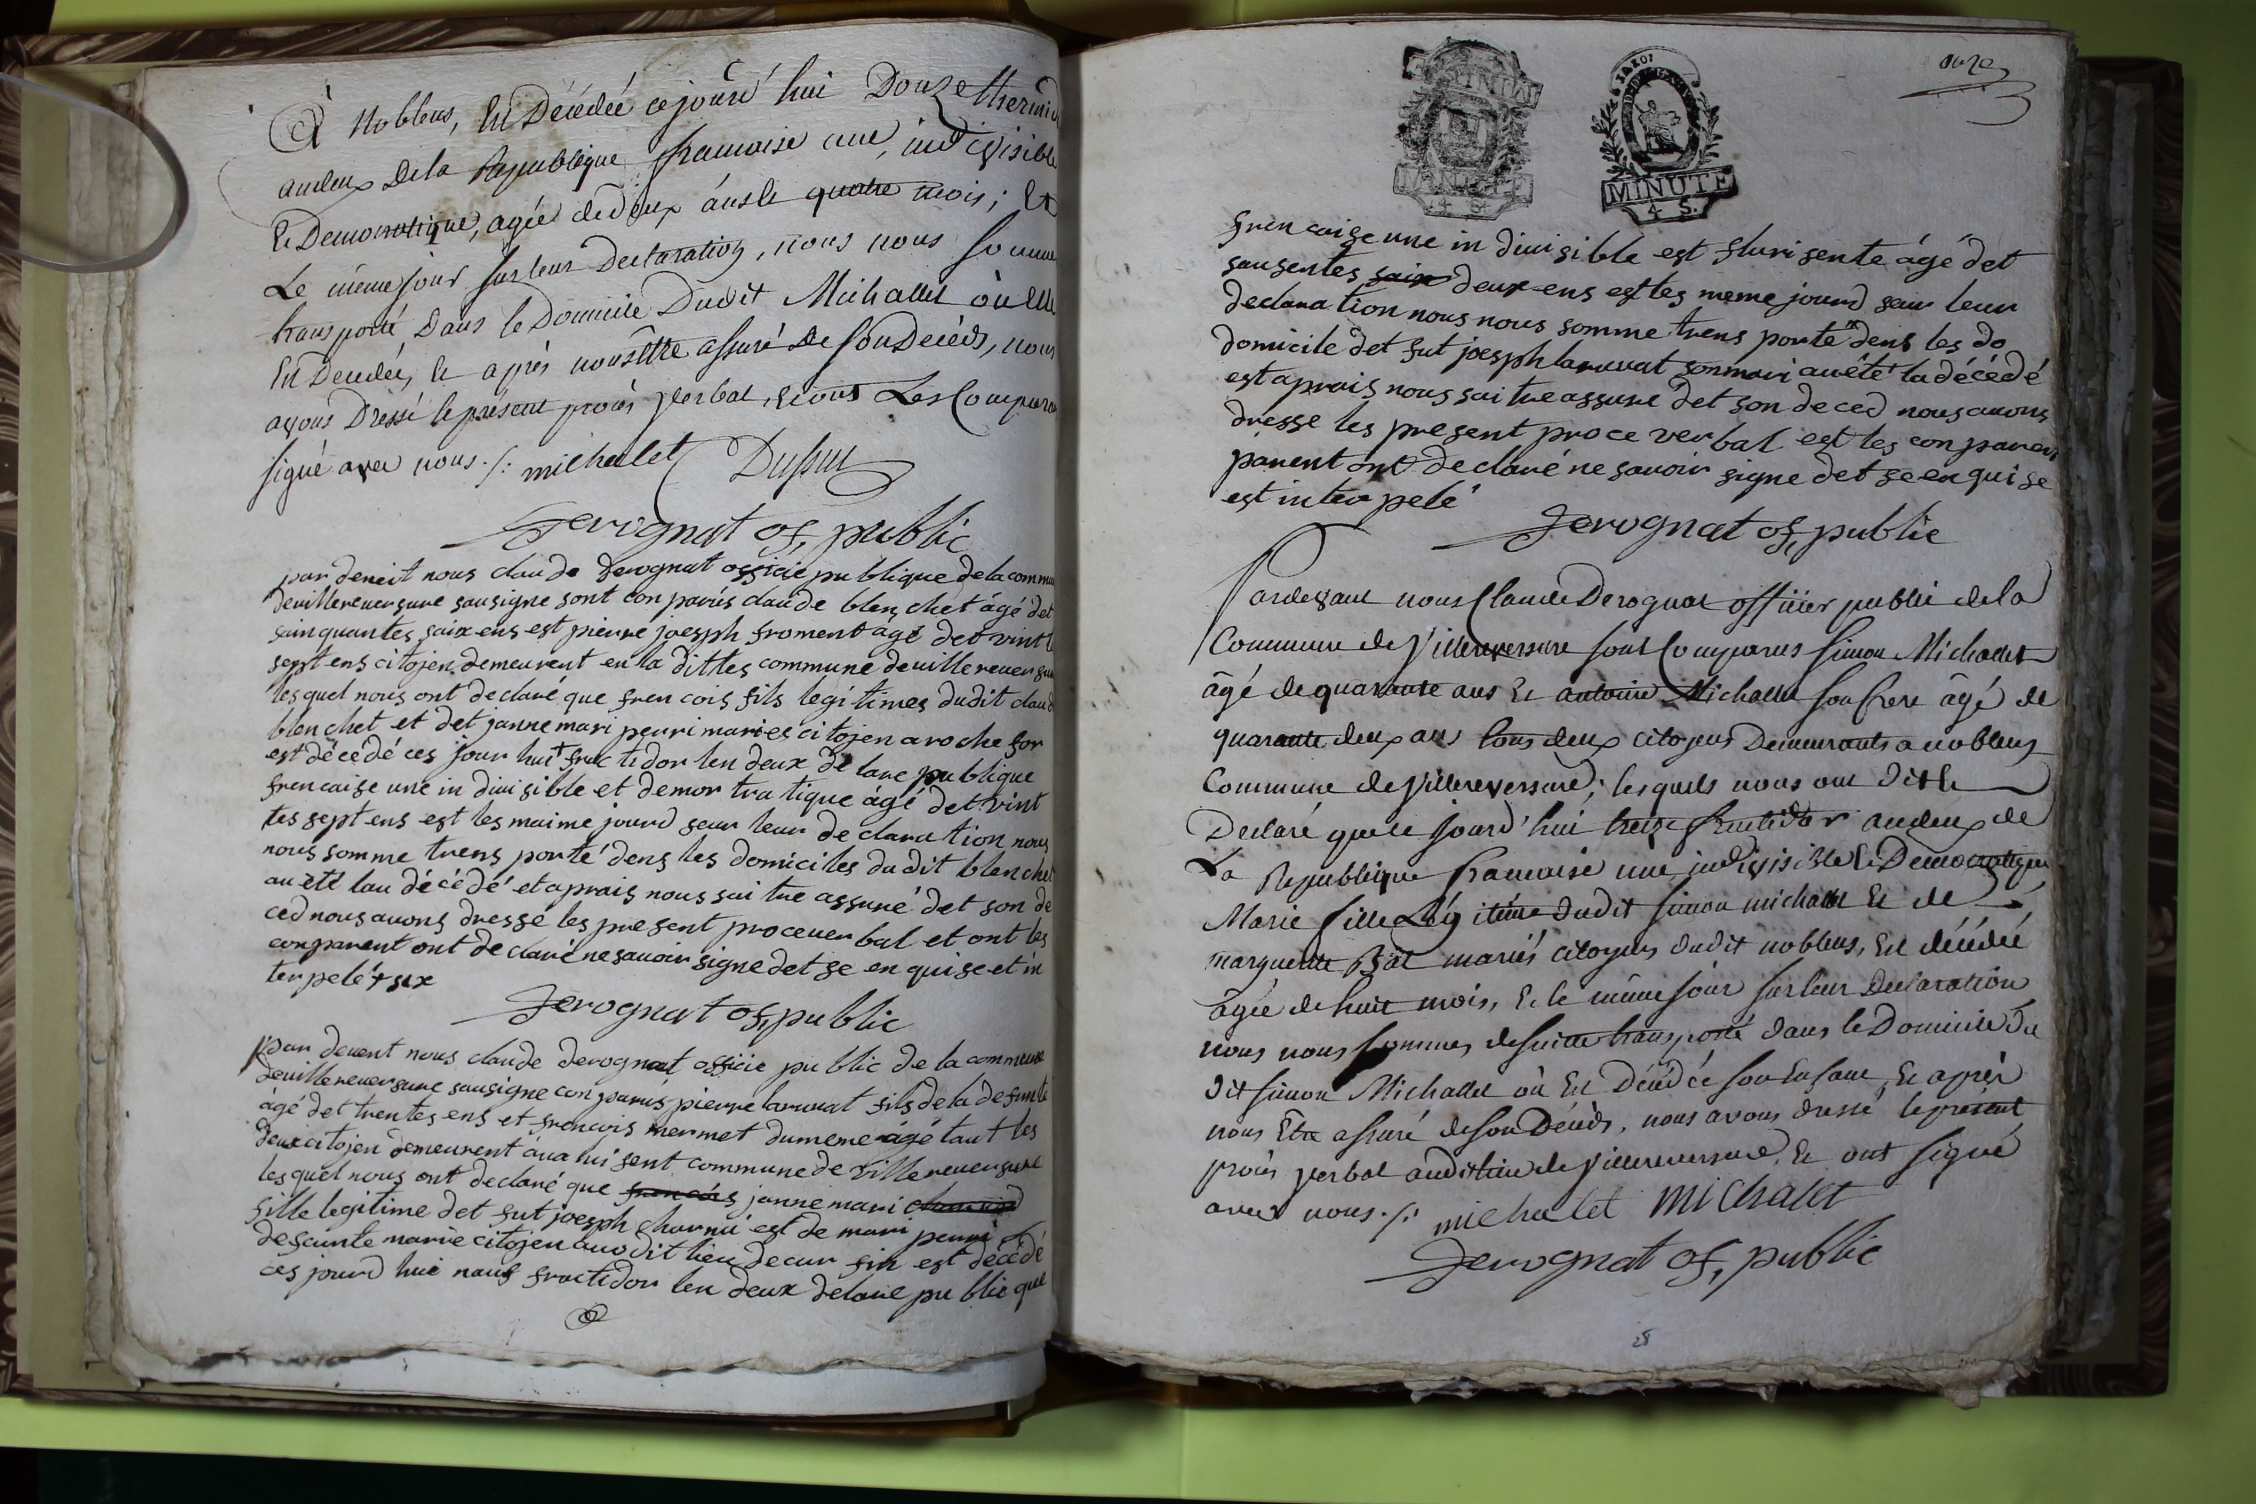 À Nobleus, Est Décédée ce jourd'hui Douze thermid
an deux de la Republique francoise une, indivisible
Et Democratique, agée de deux áns & quatre mois; Et
Le même jour sur leur Declaration, nous nous somme
transporté Dans le Domicile Dudit Michallet où Elle
Est Decedée, & après nous être assuré de son Decéds, nous
avons Dressé le present procès verbal, et ont Les Compara
signé avec nous ./: michalet Dupui
Derognat of, public
par deneit nous claude derognat officie publique de la commu
de villereuersure sousigne sont con parús claude blenchet âgé det
sainquantes saix ens est pieure joesph froment âgé det vint
sept ens citojen demeurent en la dittes commune de uille reuersu
les quel nous ont declaré que frencois fils legitimes dudit claud
blenchet et det janne mari peuri maries citojen a roche for
est décedé ces jour huit fructidor len deux de lare publique
frencaise une in diuisible et demortratique âgé det vint
tes sept ens est les maime jourd seur leur declaration nous
nous somme trens porté dens les domiciles dudit blenchet
au été lau décédé et aprais nous sai tre assuré det son de
ced nous auons dresse les present proceuerbal et ont les
conparent ont declaré ne sauoir signe det se en quise et in
terpelé + six
Derognat of, public
par deuent nous claude derognat officie public de la commune
deuillereuersure sousigne con parus pierre laruat fils de la defunte
âgé det trentes ens et francois mermet dumeme âgé taut les
deux citojen demeurent á ua lui sent commune de villereuersure
les quel nous ont declaré que francois janne mari
fille legitime det fut joesph charnu est de mari peuri
de sainte marie citojen auo dit lieu de cur fin est décédé
ces jourd hui nauf fructidor len deux delare publique
onze
MINUTE
4 S.
MINUTE
4 S.
frencaise une in diuisible est flurisente âgé det
sausentes saix deux ens est les meme jourd saur leur
declaration nous nous somme trens porté dens les do
domicile det fut joesph laruat son mari au été la décédé
est aprais nous sai tre assure det son deced nous auons
dresse les present proce verbal est les con parent
parent ont declaré ne sauoir signe det se en qui se
est interpelé
Derognat of, public
Pardevant nous Claude Derognat officier public de la
Commune de Villereversure sont Comparus Simon Michallet
âgé de quarante ans & antoine Michallet son frere âgé de
quarante deux ans tous deux citoyens Demeurants a nobleus
Commune de Villereversure; lesquels nous ont dit &
Declaré que ce jourd'hui treize fructidor an deux de
La Republique francoise une, indivisible & Democratique
Marie fille Légitime dudit simon michallet & de
marguerite mariés citoyens dudit nobleus, Est décédée
âgée de huit mois, & le même jour sur leur Declaration
nous nous sommes de suitte transporté dans le Domicile du
dit simon Michallet où Est Décédée son Enfant, & après
nous Etre assuré de son Décéds, nous avons dressé le présent
procès verbal audit lieu de Villereversure, & ont signé
avec nous ./: michalet michalet
Derognat of, public
28